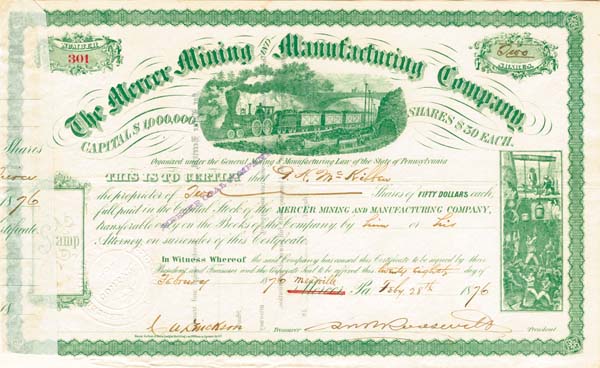 NUMBER
301
Two
SHARES
The Mercer Mining AND Manufacturing Company.
CAPITAL $1,000,000, SHARES $50 EACH.
Organized under the General Mining & Manufacturing Law of the State of Pennsylvania
THIS IS TO CERTIFY that
the proprietor of Two Shares of FIFTY DOLLARS each,
full paid in the Capital Stock of the MERCER MINING AND MANUFACTURING COMPANY,
transferable only on the Books of the Company by him or his
Attorney on surrender of this Certificate.
In Witness Whereof the said Company has caused this Certificate to be signed by their
President and Treasurer and the Corporate Seal to be affixed this twenty eighth day of
February 1876 Mercer Pa Feby 28th 1876
Treasurer President
Shares
1876
Certificate.
Stamp